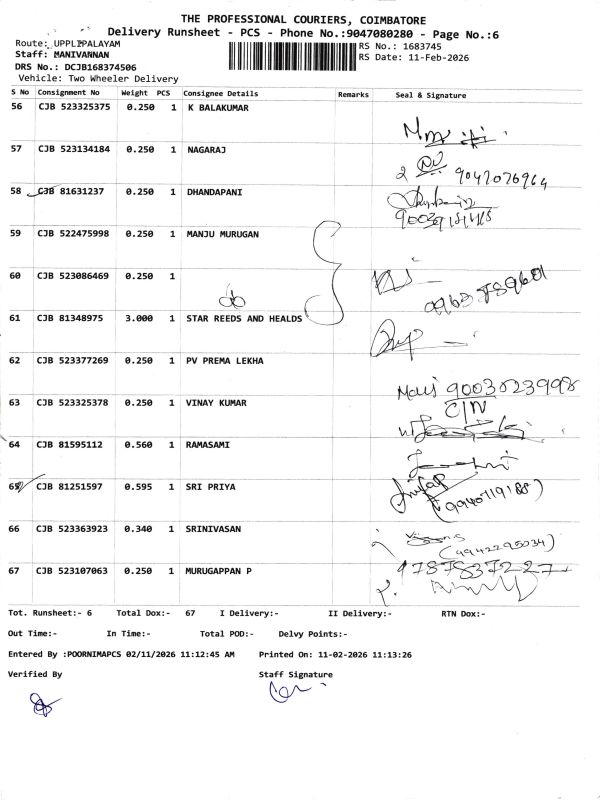 THE PROFESSIONAL COURIERS, COIMBATORE
Delivery Runsheet - PCS - Phone No.:9047080280 - Page No.:6
Route: UPPLIPALAYAM
RS No.: 1683745
Staff: MANIVANNAN
RS Date: 11-Feb-2026
DRS No.: DCJB168374506
Vehicle: Two Wheeler Delivery
S No Consignment No Weight PCS Consignee Details Remarks Seal & Signature
56 CJB 523325375 0.250 1 K BALAKUMAR
57 CJB 523134184 0.250 1 NAGARAJ
9047076964
58 CJB 81631237 0.250 1 DHANDAPANI
59 CJB 522475998 0.250 1 MANJU MURUGAN
60 CJB 523086469 0.250 1
9963789601
61 CJB 81348975 3.000 1 STAR REEDS AND HEALDS
62 CJB 523377269 0.250 1 PV PREMA LEKHA
63 CJB 523325378 0.250 1 VINAY KUMAR
64 CJB 81595112 0.560 1 RAMASAMI
65 CJB 81251597 0.595 1 SRI PRIYA
66 CJB 523363923 0.340 1 SRINIVASAN
(9942295034)
67 CJB 523107063 0.250 1 MURUGAPPAN P
Tot. Runsheet:- 6 Total Dox:- 67 I Delivery:- II Delivery:- RTN Dox:-
Out Time:- In Time:- Total POD:- Delvy Points:-
Entered By :POORNIMAPCS 02/11/2026 11:12:45 AM Printed On: 11-02-2026 11:13:26
Verified By Staff Signature